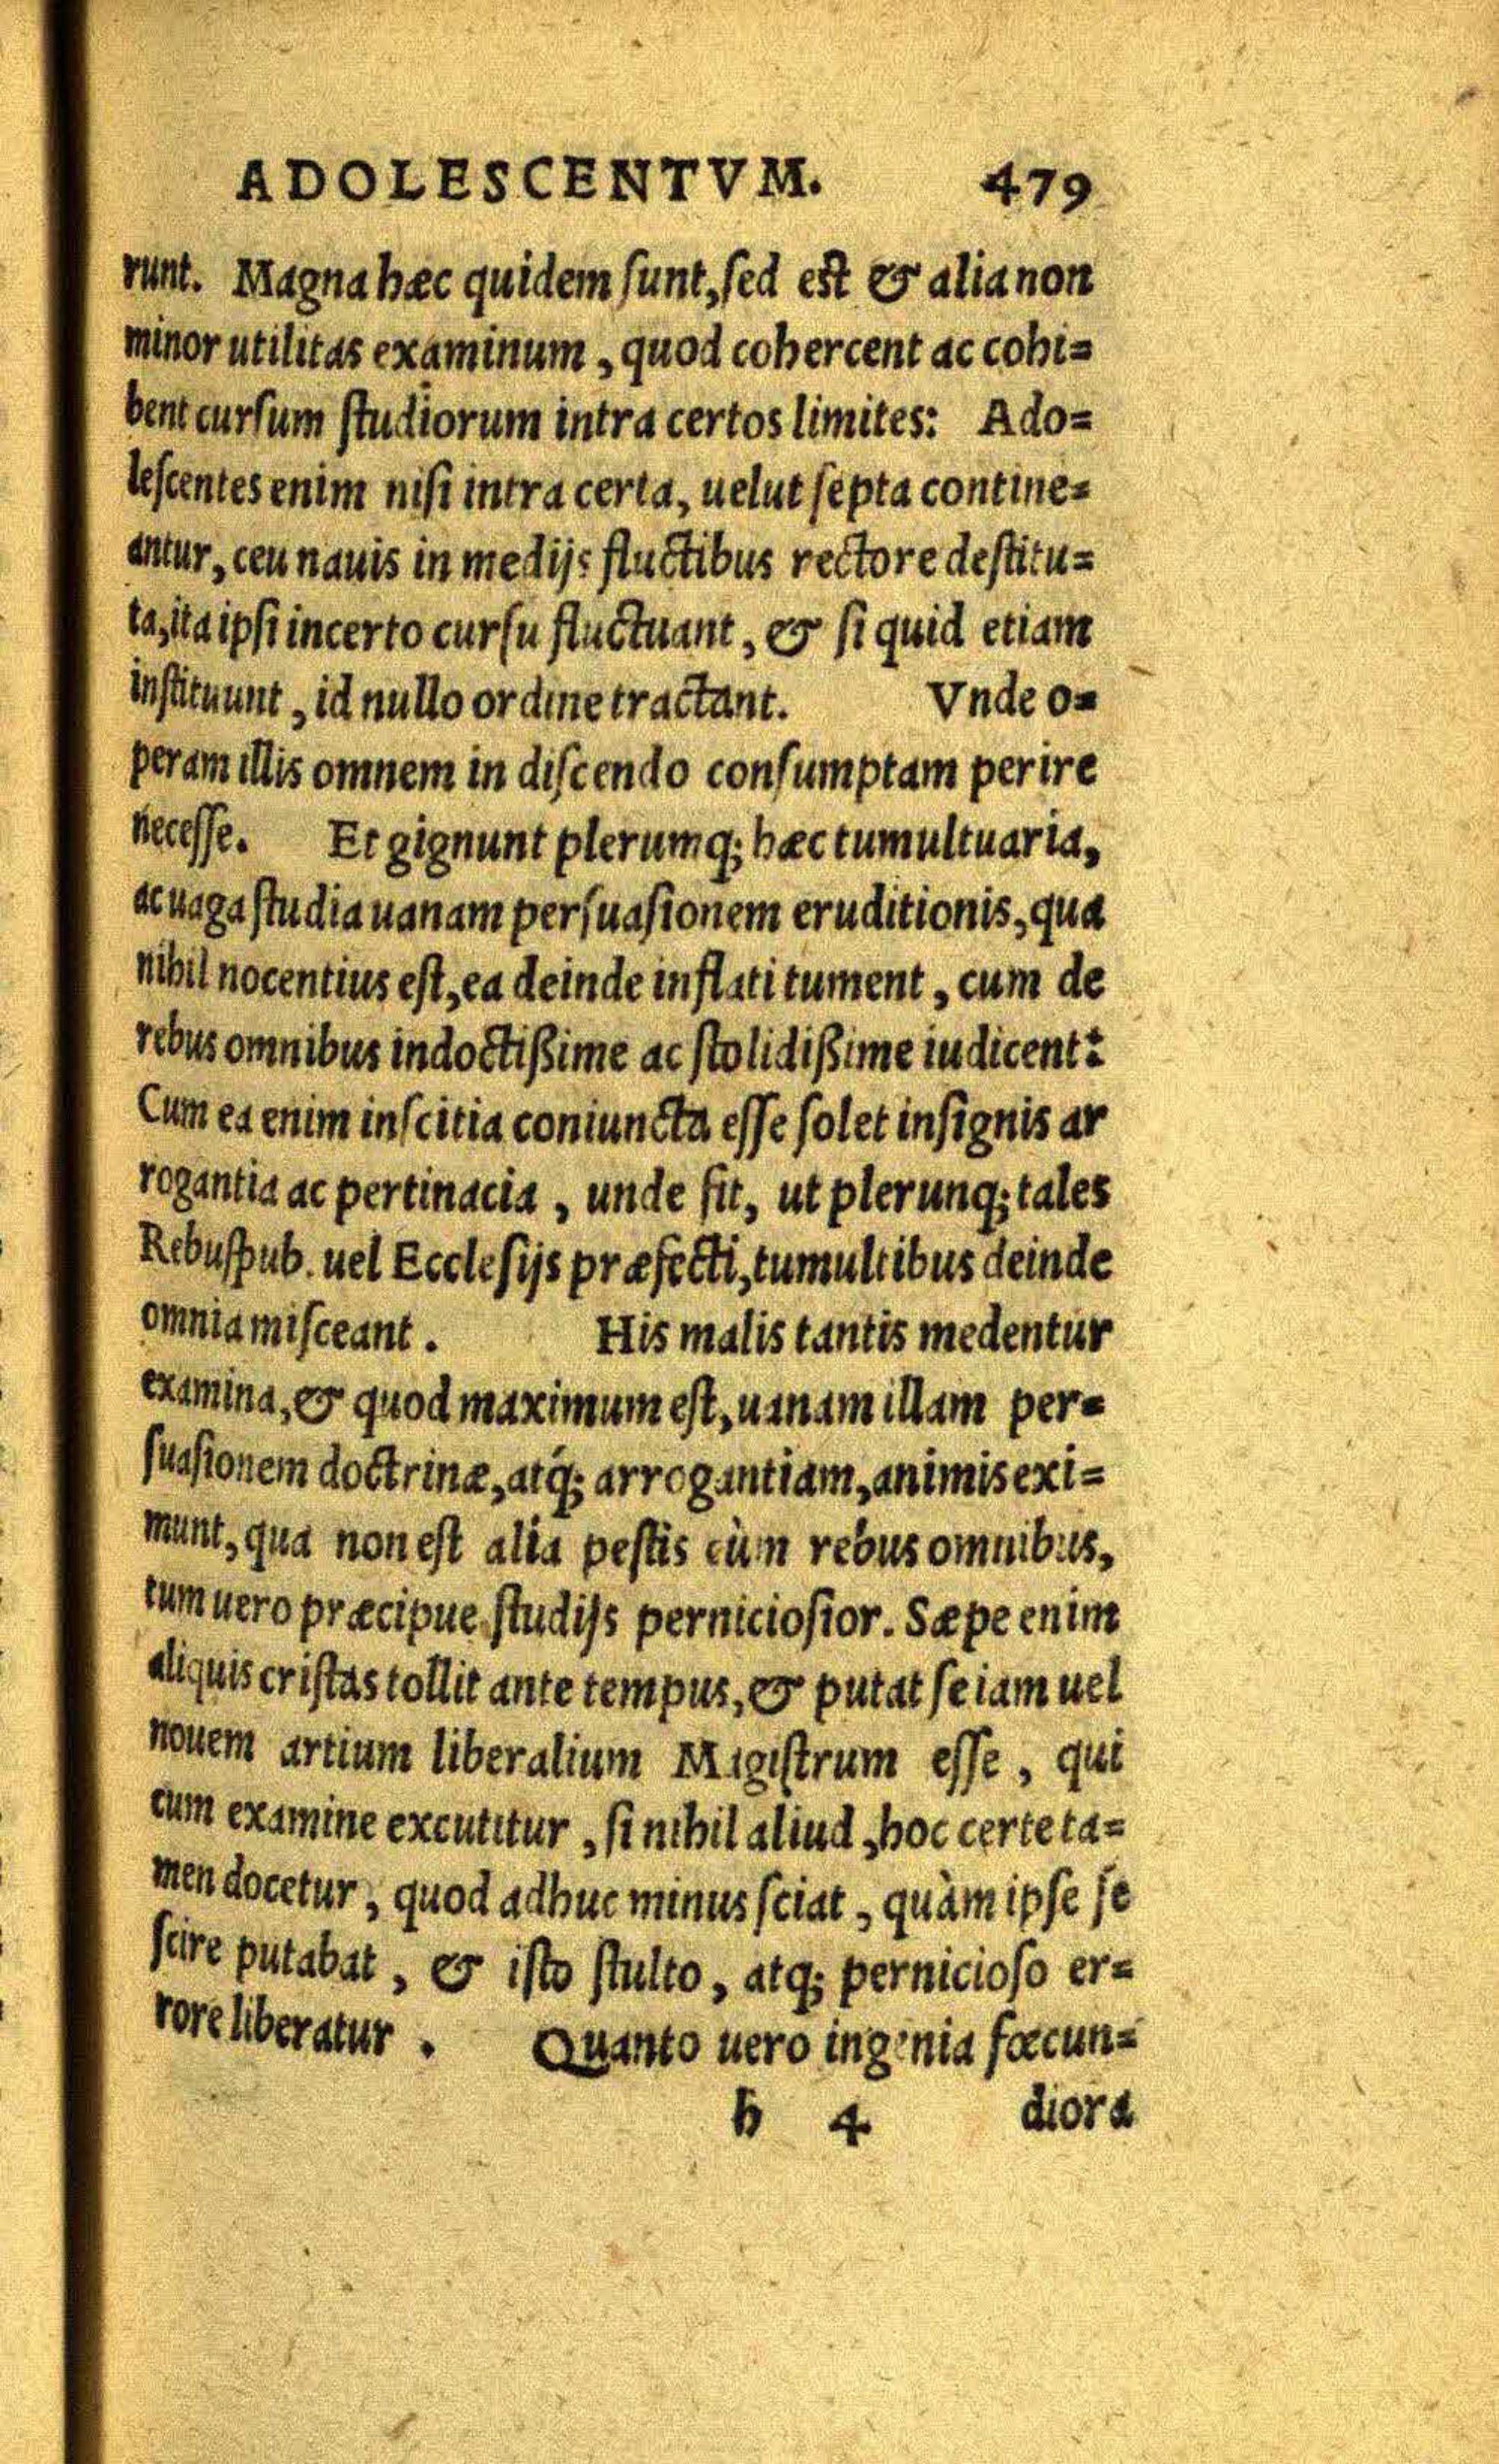 ADOLESCENTVM. 479
runt. Magna hæc quidem ſunt, ſed eſt & alia non
minor utilitas examinum, quod cohercent ac cohi=
bent curſum ſtudiorum intra certos limites: Ado=
leſcentes enim niſi intra certa, uelut ſepta contine=
antur, ceu nauis in medijs fluctibus rectore deſtitu=
ta, ita ipſi incerto curſu fluctuant, & ſi quid etiam
inſtituunt, id nullo ordine tractant. Vnde o=
peram illis omnem in diſcendo conſumptam perire
neceſſe. Et gignunt plerumq; hæc tumultuaria,
ac uaga ſtudia uanam perſuaſionem eruditionis, qua
nihil nocentius eſt, ea deinde inflati tument, cum de
rebus omnibus indoctißime ac ſtolidißime iudicent:
Cum ea enim inſcitia coniuncta eſſe ſolet inſignis ar
rogantia ac pertinacia, unde fit, ut plerunq; tales
Rebuſpub. uel Eccleſijs præfecti, tumultibus deinde
omnia miſceant. His malis tantis medentur
examina, & quod maximum eſt, uanam illam per=
ſuaſionem doctrinæ, atq́; arrogantiam, animis exi=
munt, qua non eſt alia peſtis cùm rebus omnibus,
tum uero præcipue ſtudijs pernicioſior. Sæpe enim
aliquis criſtas tollit ante tempus, & putat ſe iam uel
nouem artium liberalium Magiſtrum eſſe, qui
cum examine excutitur, ſi nihil aliud, hoc certe ta=
men docetur, quod adhuc minus ſciat, quàm ipſe ſe
ſcire putabat, & iſto ſtulto, atq; pernicioſo er=
rore liberatur. Quanto uero ingenia fœcun=
h 4 diora